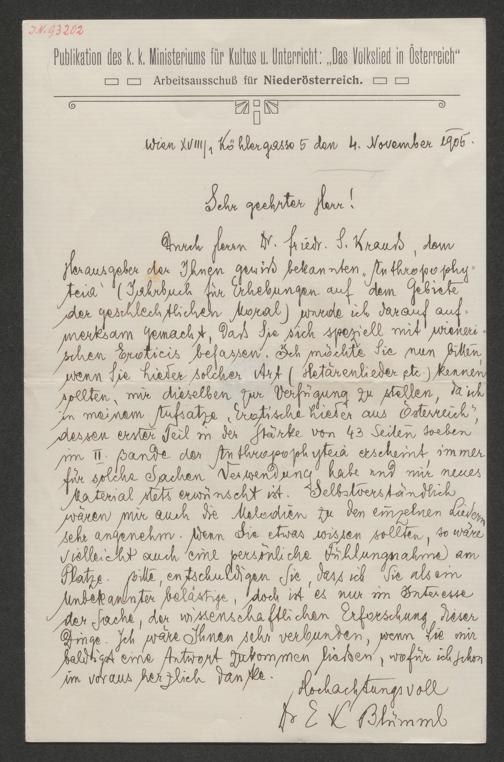 J.N. 93202
Publikation des k. k. Ministeriums für Kultus u. Unterricht: „Das Volkslied in Österreich“
Arbeitsausschuß für Niederösterreich.
Wien XVIII/1 Köhlergasse 5 den 4. November 1905.
Sehr geehrter Herr!
Durch Herrn Dr. Friedr. S. Krauß, dem
Herausgeber der Ihnen gewiß bekannten „Anthropophy-
teia“ (Jahrbuch für Erhebungen auf dem Gebiete
der geschlechtlichen Moral) wurde ich darauf auf-
merksam gemacht, daß Sie sich speziell mit wieneri-
schen Eroticis befassen. Ich möchte Sie nun bitten,
wenn Sie Lieder solcher Art (Hetärenlieder etc.) kennen
sollten, mir dieselben zur Verfügung zu stellen, da ich
in meinem Aufsatze „Erotische Lieder aus Österreich“,
dessen erster Teil in der Stärke von 43 Seiten soeben
im II. Bande der Anthropophyteia erscheint immer
für solche Sachen Verwendung habe und mir neues
Material stets erwünscht ist. Selbstverständlich
wären mir auch die Melodien zu den einzelnen Liedern
sehr angenehm. Wenn Sie etwas wissen sollten, so wäre
vielleicht auch eine persönliche Fühlungnahme am
Platze. Bitte, entschuldigen Sie, dass ich Sie als ein
Unbekannter belästige, doch ist es nur im Interesse
der Sache, der wissenschaftlichen Erforschung dieser
Dinge. Ich wäre Ihnen sehr verbunden, wenn Sie mir
baldigst eine Antwort zukommen ließen, wofür ich schon
im voraus herzlich danke.
Hochachtungsvoll
Dr E K Blümml